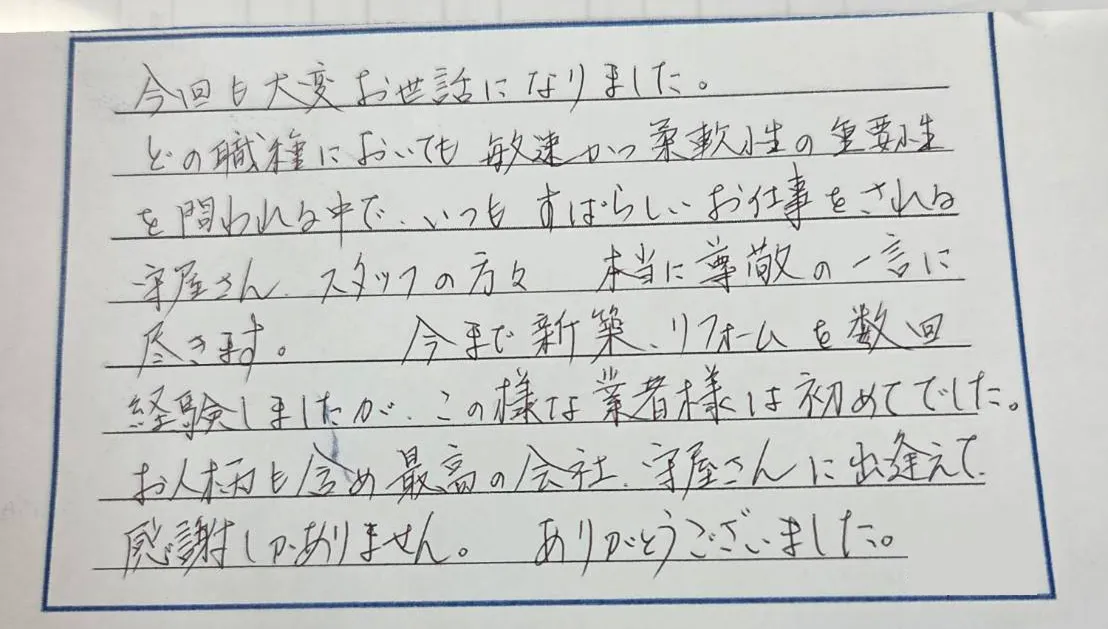 今回も大変お世話になりました。
どの職種においても敏速かつ柔軟性の重要性
を問われる中で、いつもすばらしいお仕事をされる
守屋さん、スタッフの方々 本当に尊敬の一言に
尽きます。 今まで新築、リフォームを数回
経験しましたが、この様な業者様は初めてでした。
お人柄も含め最高の会社、守屋さんに出逢えて、
感謝しかありません。 ありがとうございました。